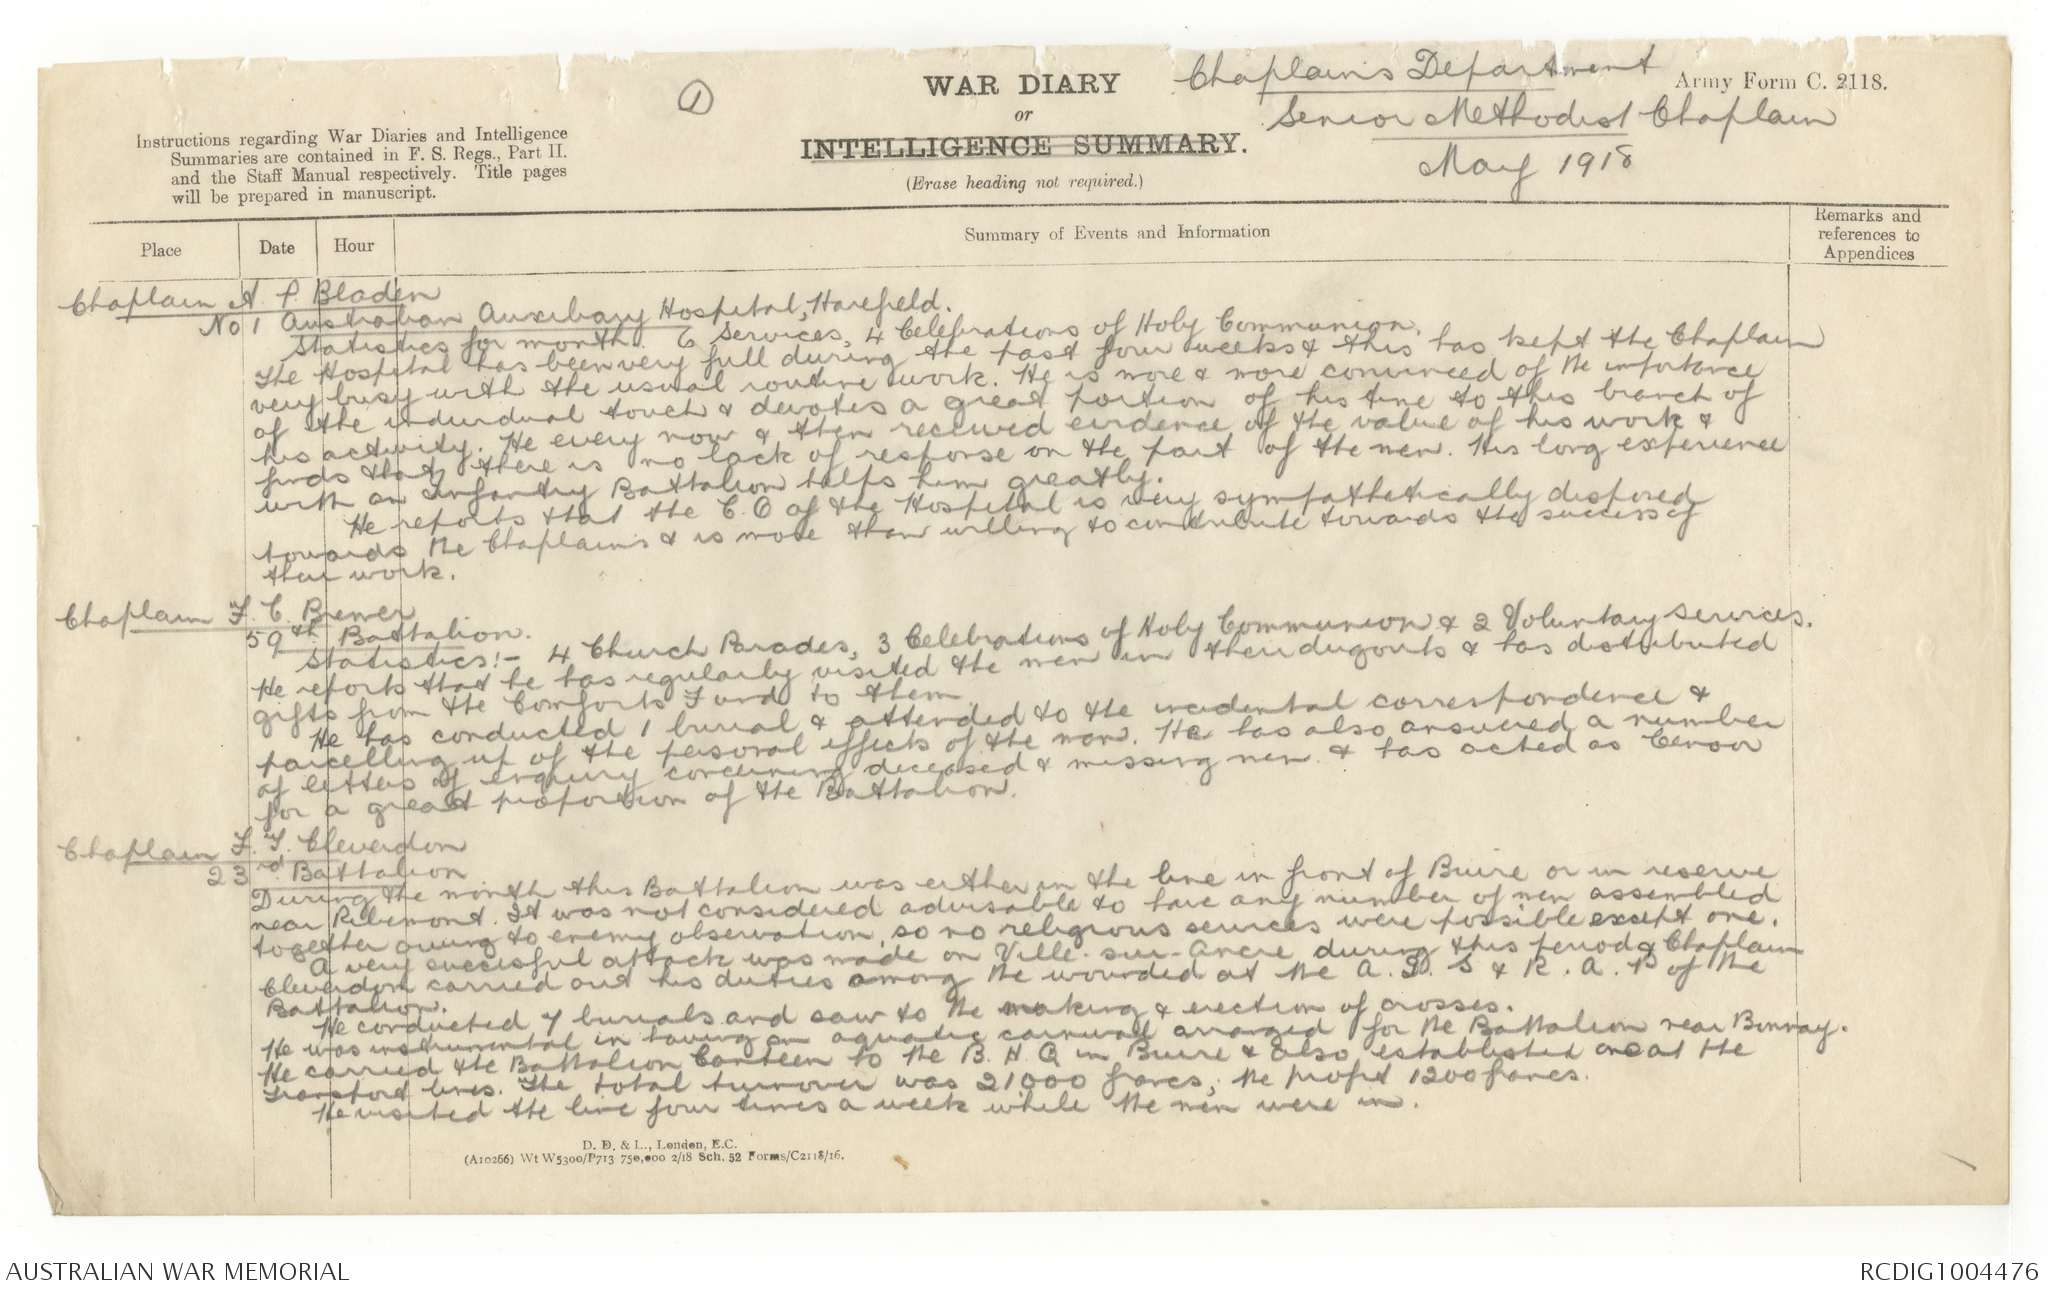 Chaplains Department
Army Form C. 2118.
①
WAR DIARY
or
INTELLIGENCE SUMMARY.
(Erase heading not required.)
Senior Methodist Chaplain
May 1918
Instructions regarding War Diaries and Intelligence
Summaries are contained in F. S. Regs., Part II.
and the Staff Manual respectively. Title pages
will be prepared in manuscript.
Place
Date
Hour
Summary of Events and Information
Remarks and
references to
Appendices
Chaplain A. P. Bladen
No 1 Australian Auxiliary Hospital, Harefield.
Statistics for month. 6 Services, 4 Celebrations of Holy Communion.
The Hospital has been very full during the past four weeks & this has kept the Chaplain
very busy with the usual routine work. He is more & more convinced of the importance
of the individual touch & devotes a great portion of his time to this branch of
his activity. He every now & then received evidence of the value of his work &
finds that there is no lack of response on the part of the men. His long experience
with an Infantry Battalion helps him greatly.
He reports that the C.O of the Hospital is very sympathetically disposed
towards the Chaplains & is more than willing to contribute towards the success of
their work.
Chaplain F. C. Brewer
59th Battalion.
Statistics:- 4 Church Parades, 3 Celebrations of Holy Communion & 2 Voluntary Services.
He reports that he has regularly visited the men in their dugouts & has distributed
gifts from the Comforts Fund to them
He has conducted 1 burial & attended to the incidental correspondence &
parcelling up of the personal effects of the man. He has also answered a number
of letters of enquiry concerning deceased & missing men & has acted as Censor
for a great proportion of the Battalion.
Chaplain F. T. Cleverdon
23rd Battalion
During the month this Battalion was either in the line in front of Buire or in reserve
near Ribemont. It was not considered advisable to have any number of men assembled
together owing to enemy observation, so no religious services were possible except one.
A very successful attack was made on Ville-sur-Ancre during this period & Chaplain
Cleverdon carried out his duties among the wounded at the A. D. S & R. A. P of the
Battalion.
He conducted 7 burials and saw to the making & erection of crosses.
He was instrumental in having an aquatic carnival arranged for the Battalion near Bonnay.
He carried the Battalion Canteen to the B. H. Q in Buire & also established one at the
Transport lines. The total turnover was 21000 francs; the profit 1200 francs.
He visited the line four times a week while the men were in.
D. D. & L., London, E.C.
(A10266) Wt W5300/P713 750,000 2/18 Sch. 52 Forms/C2118/16.
AUSTRALIAN WAR MEMORIAL
RCDIG1004476